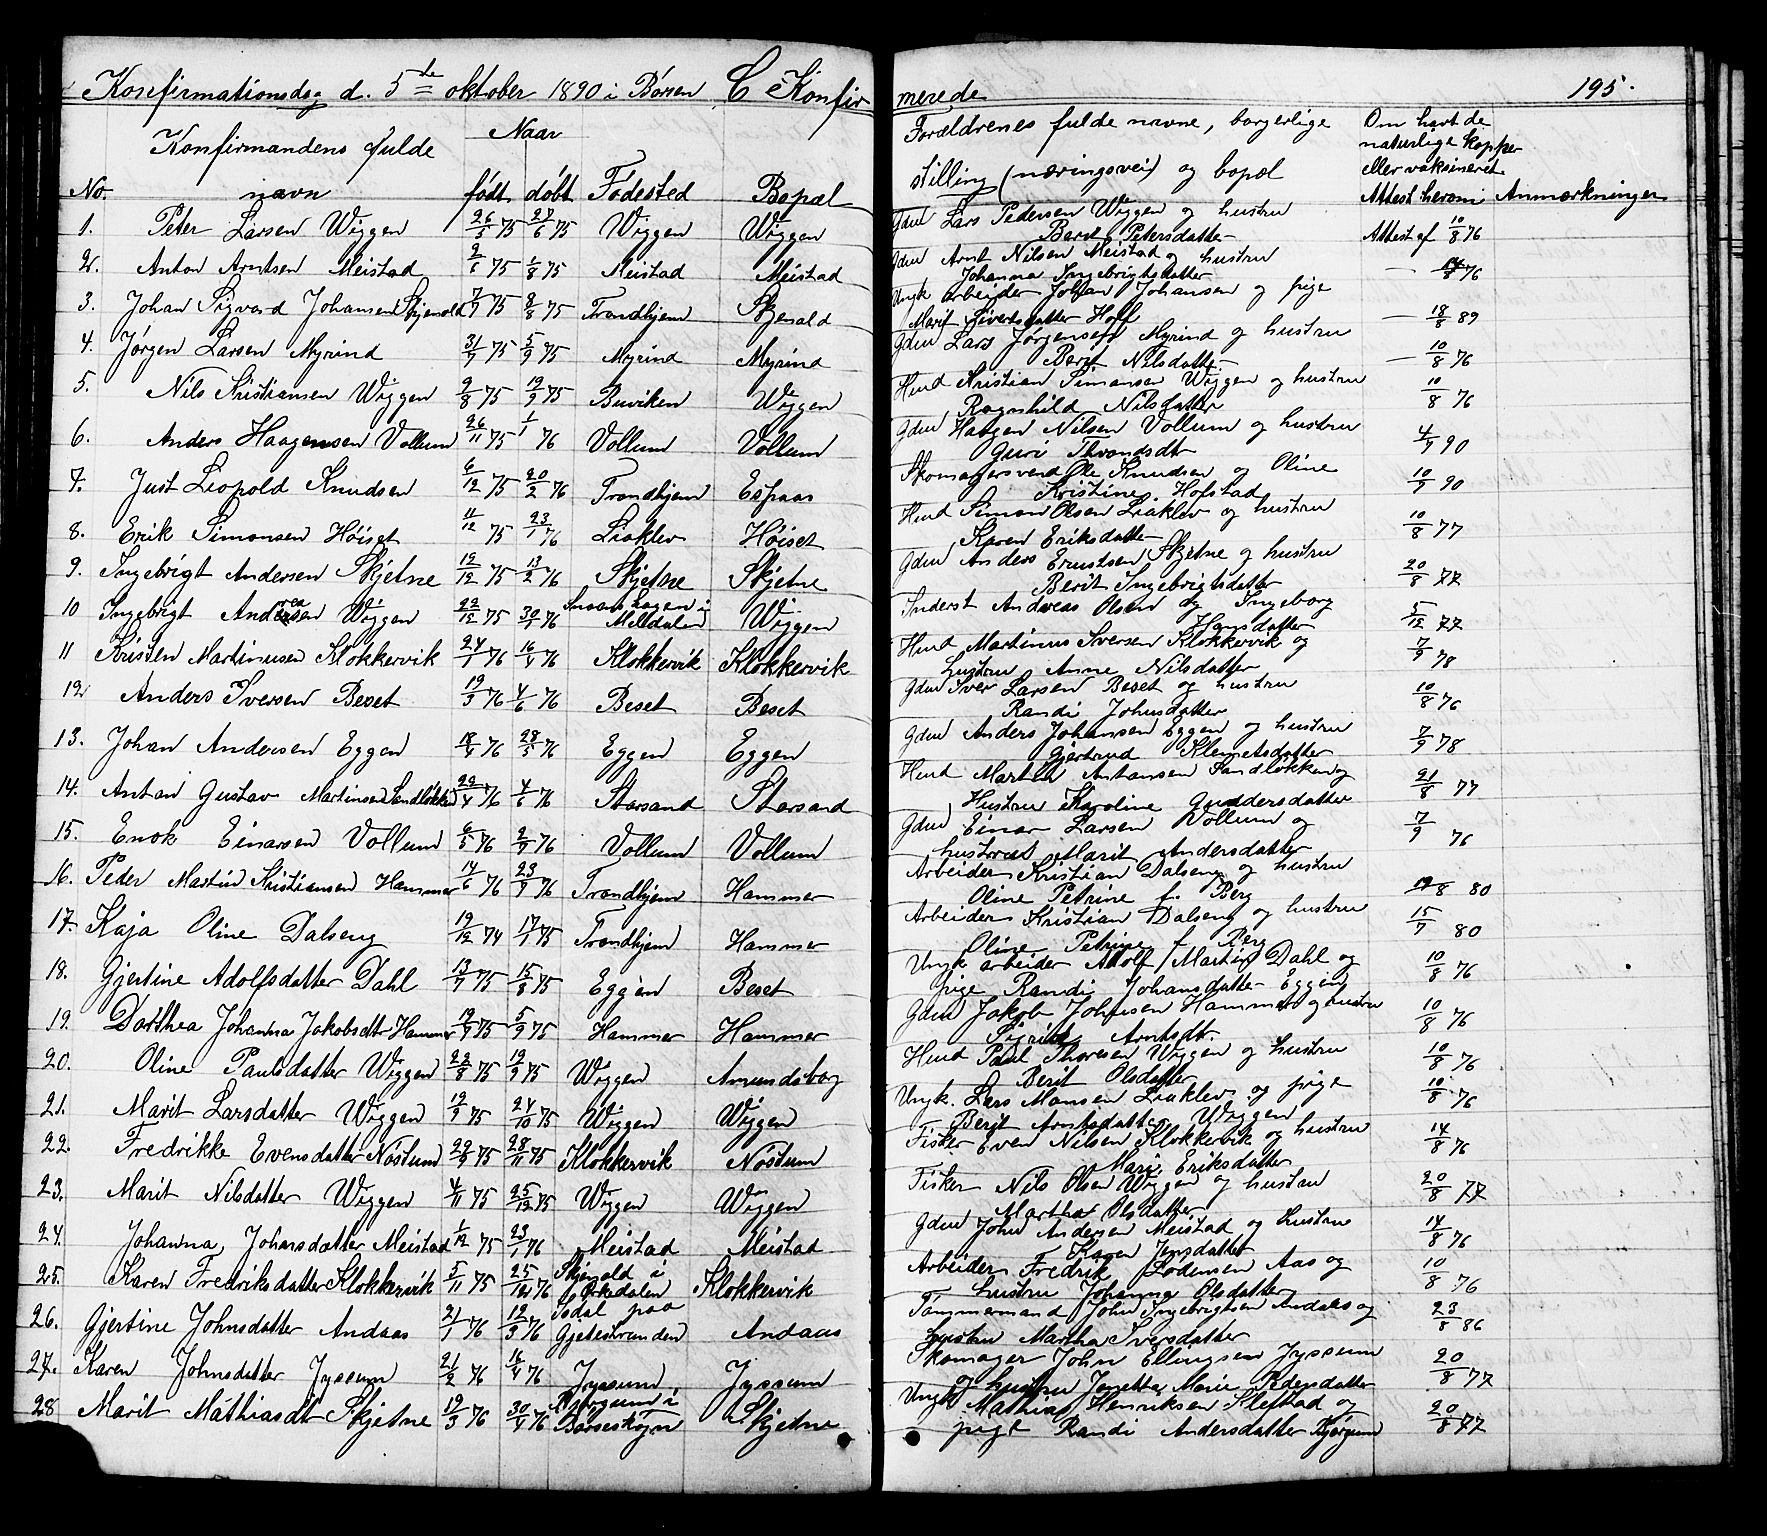 Konfirmationsdag d. 5te oktober 1890 i Børsen C Konfirmerede 195.
Konfirmandens fulde navn
Naar
No. født døbt Fødested Bopæl
Forældrenes fulde navne, borgerlige
stilling (næringsvei) og bopæl
Om havt de
naturlige kopper
eller vaksineret.
Attest herom Anmærkninger
1. Peter Larsen Wiggen 26/5 75 27/6 75 Wiggen Wiggen Gdm Lars Pedersen Wiggen og hustru
Berit Petersdatter Attest af 10/8 76
2. Anton Arntsen Meistad 2/6 75 1/8 75 Meistad Meistad Gdm Arnt Nilsen Meistad og hustru
Johanna Ingebrigtsdatter — 76
3. Johan Sigvard Johansen Skjenald 7/7 75 8/8 75 Trondhjem Skjenald Ungk arbeider Johan Johansen og pige
Marit Sivertsdatter Hoff — 18/8 89
4. Jørgen Larsen Myrind 31/7 75 5/9 75 Myrind Myrind Gdm Lars Jørgensen Myrind og hustru
Berit Nilsdatter — 10/8 76
5. Nils Kristiansen Wiggen 9/8 75 19/9 75 Buviken Wiggen Hmd Kristian Simonsen Wiggen og hustru
Ragnhild Nilsdatter 10/8 76
6. Anders Haagensen Vollum 26/11 75 1/1 76 Vollum Vollum Gdm Haagen Nilsen Vollum og hustru
Guri Throndsdt 4/7 90
7. Just Leopold Knudsen 6/12 75 20/2 76 Trondhjem Espaas Skomagersvend Ole Knudsen og Oline
Kristine Hofstad 10/9 90
8. Erik Simonsen Høiset 11/12 75 23/1 76 Liaklev Høiset Hmd Simon Olsen Liaklev og hustru
Karen Eriksdatter 10/8 77
9. Ingebrigt Andersen Skjetne 12/12 75 13/2 76 Skjetne Skjetne Gdm Anders Erentsen Skjetne og hustru
Berit Ingebrigtsdatter 20/8 77
10 Ingebrigt Andreasen Wiggen 22/12 75 30/1 76 i
Meldalen Wiggen Inderst Andreas Olsen og Ingeborg
Hansdatter 5/12 77
11 Kristen Martinusen Klokkervik 24/1 76 16/4 76 Klokkervik Klokkervik Hmd Martinus Iversen Klokkervik og
hustru Anne Nilsdatter 7/9 78
12 Anders Iversen Beset 19/3 76 4/6 76 Beset Beset Gdm Iver Larsen Beset og hustru
Randi Johnsdatter 10/8 76
13. Johan Andersen Eggen 18/4 76 28/5 76 Eggen Eggen Gdm Anders Johansen Eggen og hustru
Gjertrud Klemetsdatter 7/9 78
14. Anton Gustav Martinsen Sandløkken 22/4 76 4/6 76 Storsand Storsand Hmd Martin Antonsen Sandløkken og
Hustru Karoline Guddersdatter 21/8 77
15. Enok Einarsen Vollum 6/5 76 2/7 76 Vollum Vollum Gdm Einar Larsen Vollum og
hustru Marit Andersdatter 7/9 76
16. Peder Martin Kristiansen Hammer 14/6 76 23/7 76 Trondhjem Hammer Arbeider Kristian Dalseng og hustru
Oline Petrine f. Berg 19/8 80
17. Kaja Oline Dalseng 19/12 74 17/1 75 Trondhjem Hammer Arbeider Kristian Dalseng og hustru
Oline Petrine f. Berg 15/7 80
18. Gjertine Adolfsdatter Dahl 13/7 75 15/8 75 Eggen Beset Ungk arbeider Adolf Martin Dahl og
pige Randi Johansdatter Eggen 10/8 76
19. Dorthea Johanna Jakobsdt Hammer 19/7 75 5/9 75 Hammer Hammer Gdm Jakob Johnsen Hammer og hustru
Sigrid Arntsdt. 10/8 76
20. Oline Paulsdatter Wiggen 22/8 75 19/9 75 Wiggen Amundsborg Hmd Paul Thoresen Wiggen og hustru
Berit Olsdatter 10/8 76
21. Marit Larsdatter Wiggen 19/9 75 24/10 75 Wiggen Wiggen Ungk. Lars Monsen Liaklev og pige
Berit Arntsdatter Wiggen 10/8 76
22. Fredrikke Evensdatter Nøstum 22/9 75 28/11 75 Klokkervik Nøstum Fisker Even Nilsen Klokkervik og hustru
Mari Eriksdatter 14/8 76
23. Marit Nilsdatter Wiggen 4/11 75 25/12 75 Wiggen Wiggen Fisker Nils Olsen Wiggen og hustru
Martha Olsdatter 20/8 77
24. Johanna Johnsdatter Meistad 1/12 75 23/1 76 Meistad Meistad Gdm John Andersen Meistad og hustru
Karen Jensdatter 14/8 76
25. Karen Fredriksdatter Klokkervik 5/11 75 25/12 76 Skjenald i
Orkedalen Klokkervik Arbeider Fredrik Lodensen Aas og
hustru Johanna Olsdatter 10/8 76
26. Gjertine Johnsdatter Andaas 21/1 76 12/3 76 Isdal paa
Gjetestranden Andaas Tømmermand John Ingebrigtsen Andaas og
hustru Martha Iversdatter 23/8 86
27. Karen Johnsdatter Jyssum 21/2 76 16/4 76 Jyssum Jyssum Skomager John Ellingsen Jyssum
og hustru Jenette Marie Pedersdatter 20/8 77
28 Marit Mathiasdt Skjetne 19/3 76 30/4 76 Bjørgum i
Børseskogn Skjetne Ungk Mathias Henriksen Klefstad og
pige Randi Andersdatter Bjørgum 20/8 77